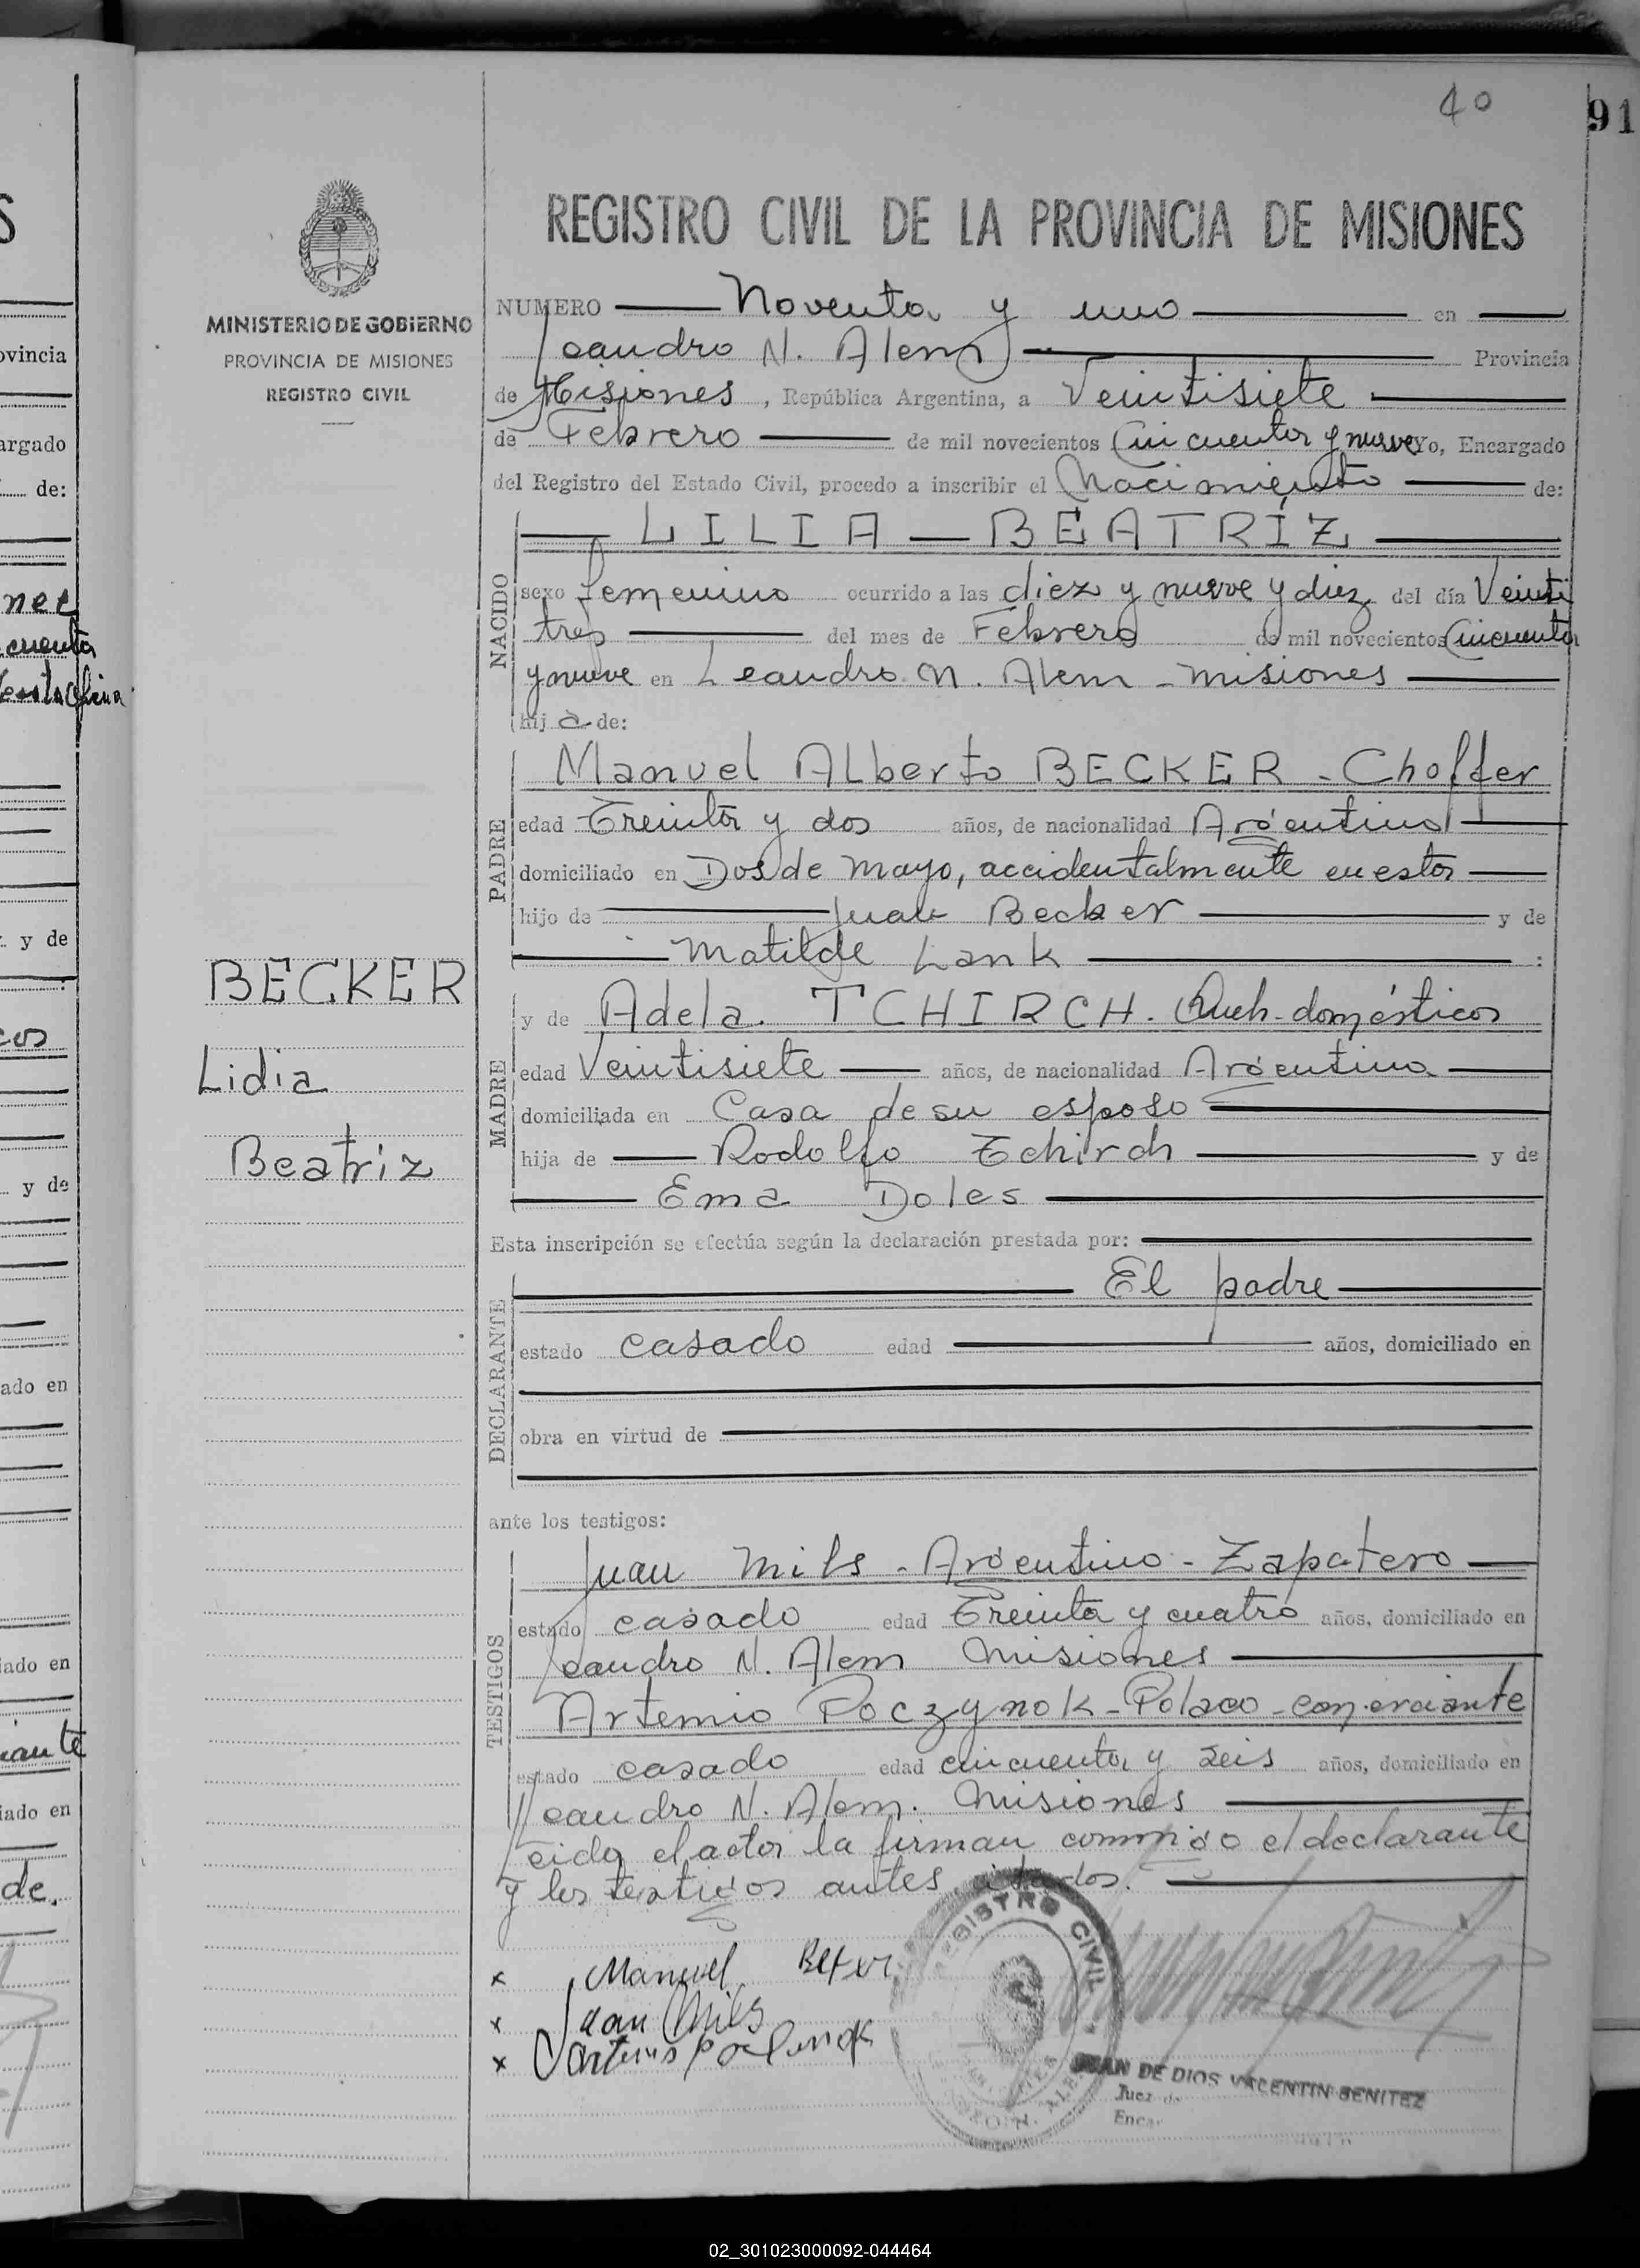 40
91
REGISTRO CIVIL DE LA PROVINCIA DE MISIONES
MINISTERIO DE GOBIERNO
PROVINCIA DE MISIONES
REGISTRO CIVIL
NUMERO Noventa y uno en
Leandro N. Alem Provincia
de Misiones, República Argentina, a Veintisiete
de Febrero de mil novecientos Cincuenta y nueve Yo, Encargado
del Registro del Estado Civil, procedo a inscribir el Nacimiento de:
NACIDO
LILIA - BEATRÍZ
sexo femenino ocurrido a las diez y nueve y diez del día Veinti
tres del mes de Febrero de mil novecientos Cincuenta
y nueve en Leandro N. Alem - Misiones
hija de:
PADRE
Manuel Alberto BECKER - Choffer
edad Treinta y dos años, de nacionalidad Argentino
domiciliado en Dos de Mayo, accidentalmente en esta
hijo de Juan Becker y de
Matilde Lank :
BECKER
Lidia
Beatriz
MADRE
y de Adela. TCHIRCH. Queh-domésticos
edad Veintisiete años, de nacionalidad Argentina
domiciliada en Casa de su esposo
hija de Rodolfo Tchirch y de
Ema Doles
Esta inscripción se efectúa según la declaración prestada por:
DECLARANTE
El padre
estado casado edad años, domiciliado en
obra en virtud de
ante los testigos:
TESTIGOS
Juan Mils - Argentino - Zapatero
estado casado edad Treinta y cuatro años, domiciliado en
Leandro N. Alem Misiones
Artemio Poczynok - Polaco - comerciante
estado casado edad cincuenta y seis años, domiciliado en
Leandro N. Alem. Misiones
Leida el acta la firman conmigo el declarante
y los testigos antes citados.
x Manuel
x Juan Mils
x
REGISTRO CIVIL
JUAN DE DIOS VALENTIN BENITEZ
Juez de
02_301023000092-044464